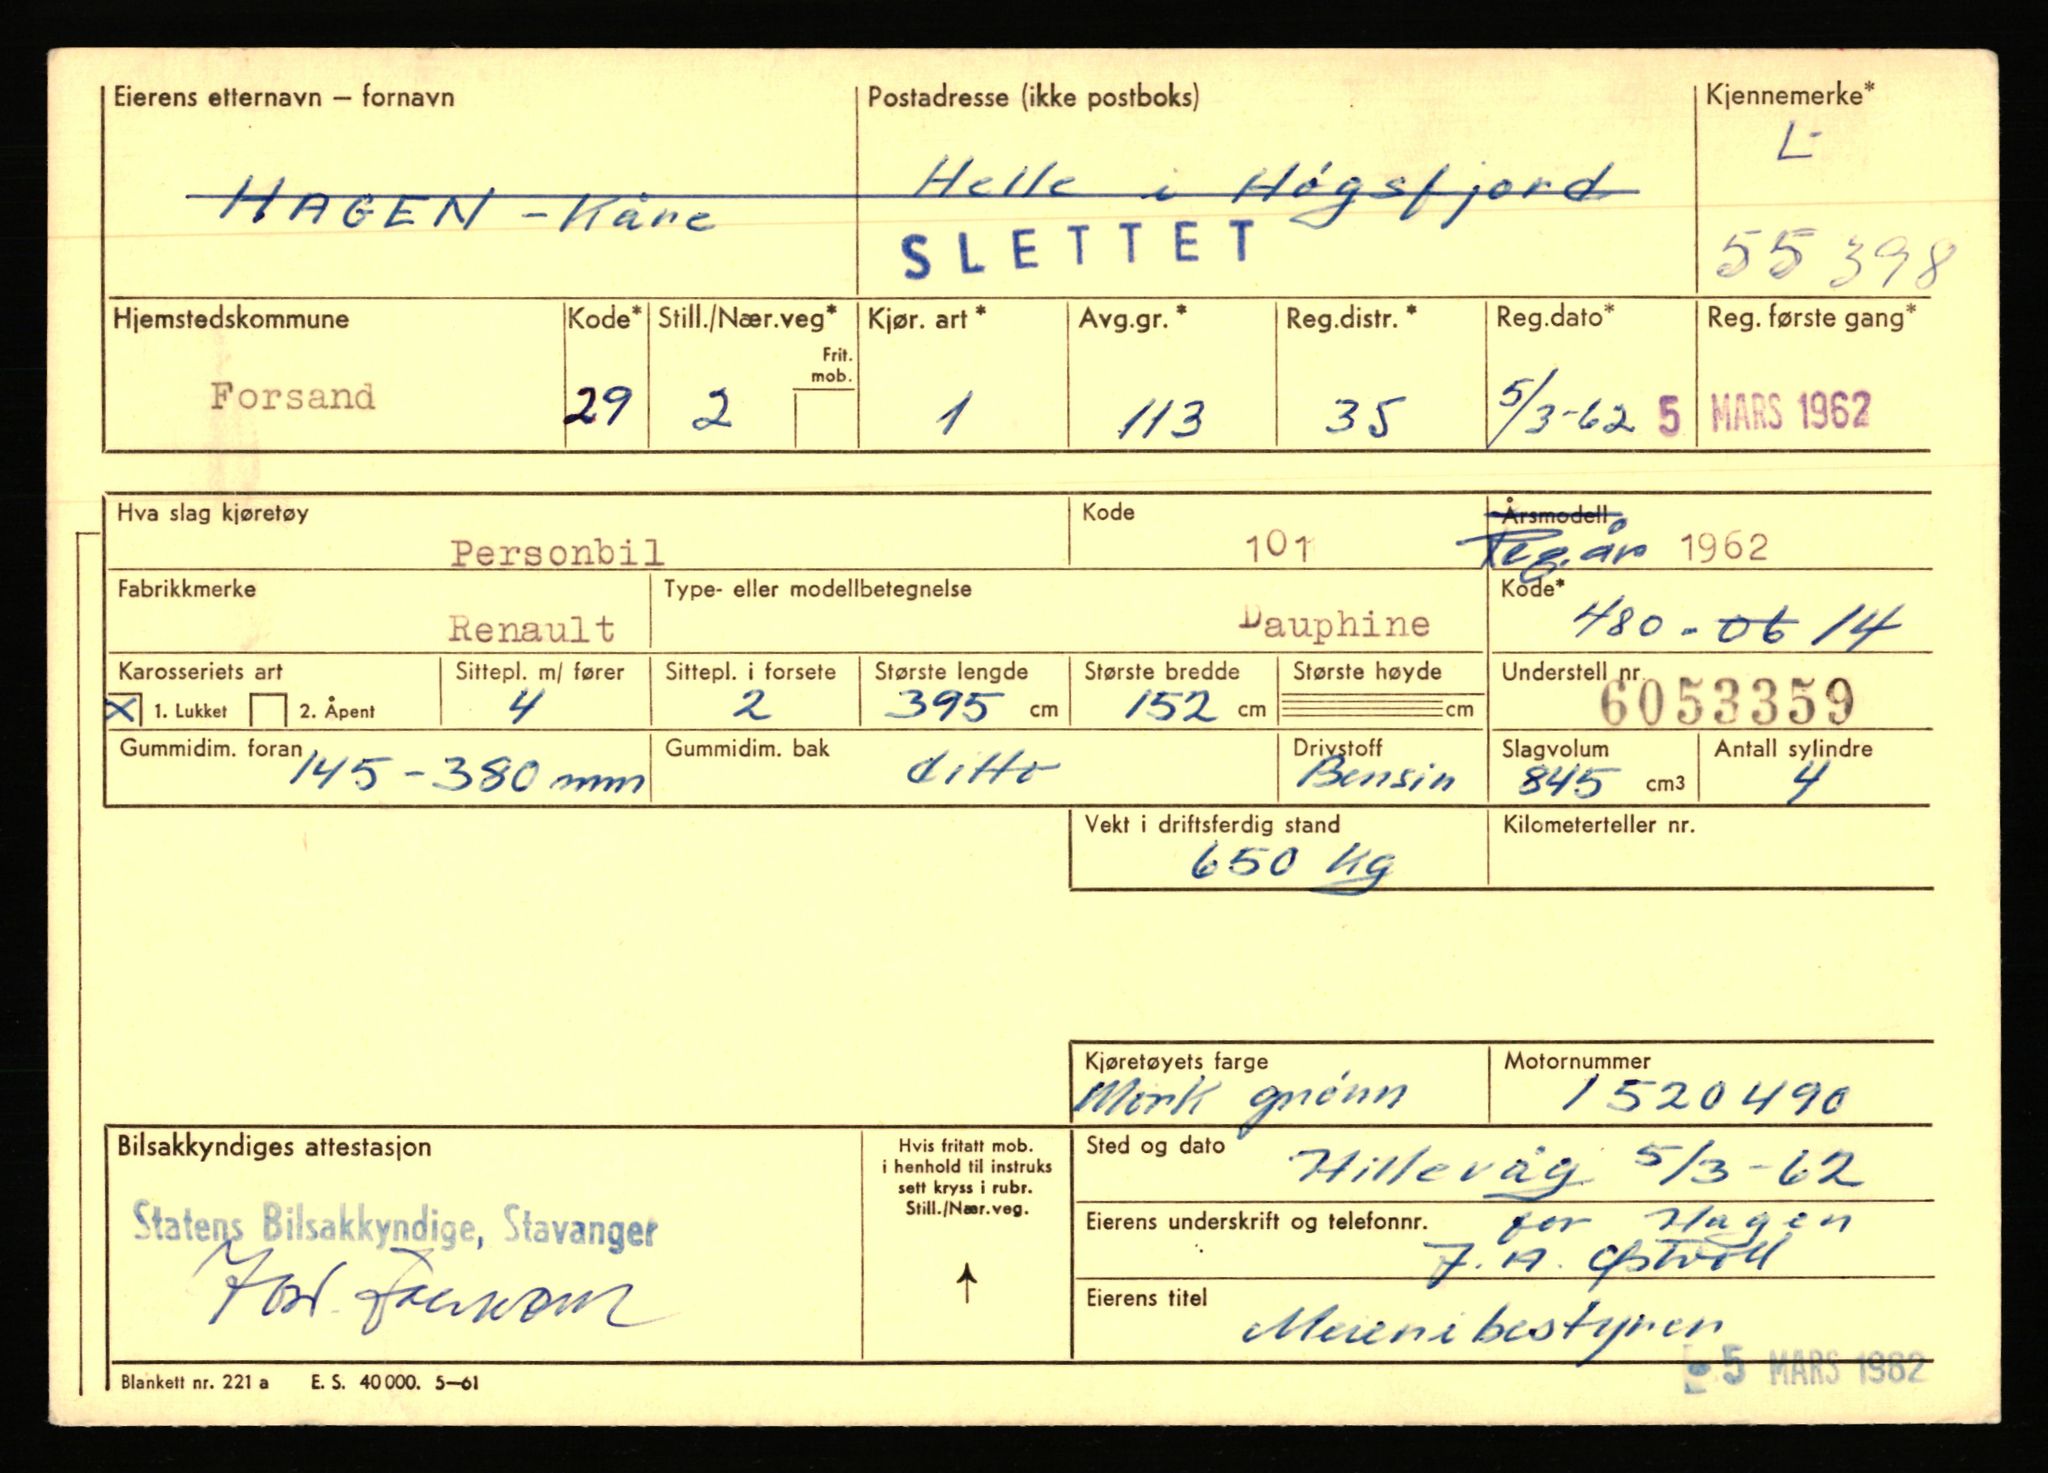 Eierens etternavn – fornavn
Postadresse (ikke postboks)
Kjennemerke*
L-
HAGEN - Kåre
Helle i Høgsfjord
SLETTET
55398
Hjemstedskommune
Kode*
Still./Nær.veg*
Kjør. art*
Avg.gr.*
Reg.distr.*
Reg.dato*
Reg. første gang*
Frit. mob.
Forsand
29
2
1
113
35
5/3-62
5 MARS 1962
Hva slag kjøretøy
Kode
Årsmodell
Personbil
101
Reg.år 1962
Fabrikkmerke
Type- eller modellbetegnelse
Kode*
Renault
Dauphine
480 - 06 14
Karosseriets art
Sittepl. m/ fører
Sittepl. i forsete
Største lengde
Største bredde
Største høyde
Understell nr.
X 1. Lukket
2. Åpent
4
2
395 cm
152 cm
cm
6053359
Gummidim. foran
Gummidim. bak
Drivstoff
Slagvolum
Antall sylindre
145 - 380 mm
ditto
Bensin
845 cm3
4
Vekt i driftsferdig stand
Kilometerteller nr.
650 kg
Kjøretøyets farge
Motornummer
Mørk grønn
1520490
Bilsakkyndiges attestasjon
Hvis fritatt mob.
i henhold til instruks
sett kryss i rubr.
Still./Nær.veg.
Sted og dato
Hillevåg 5/3-62
Statens Bilsakkyndige, Stavanger
Eierens underskrift og telefonnr.
for Hagen
Eierens titel
Meieribestyrer
5 MARS 1962
Blankett nr. 221 a E. S. 40 000. 5–61